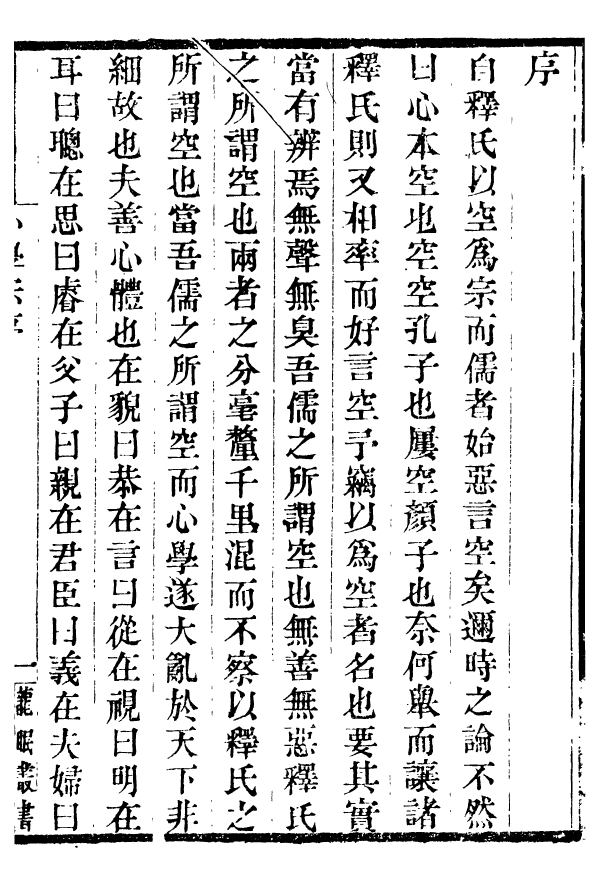 序
自釋氏以空爲宗而儒者始惡言空矣邇時之論不然
曰心本空也空空孔子也屢空顏子也奈何舉而讓諸
釋氏則又相率而好言空予竊以爲空者名也要其實
當有辨焉無聲無臭吾儒之所謂空也無善無惡釋氏
之所謂空也兩者之分毫釐千里混而不察以釋氏之
所謂空也當吾儒之所謂空而心學遂大亂於天下非
細故也夫善心體也在貌曰恭在言曰從在視曰明在
耳曰聰在思曰睿在父子曰親在君臣曰義在夫婦曰
心學宗序
一
龍眠叢書